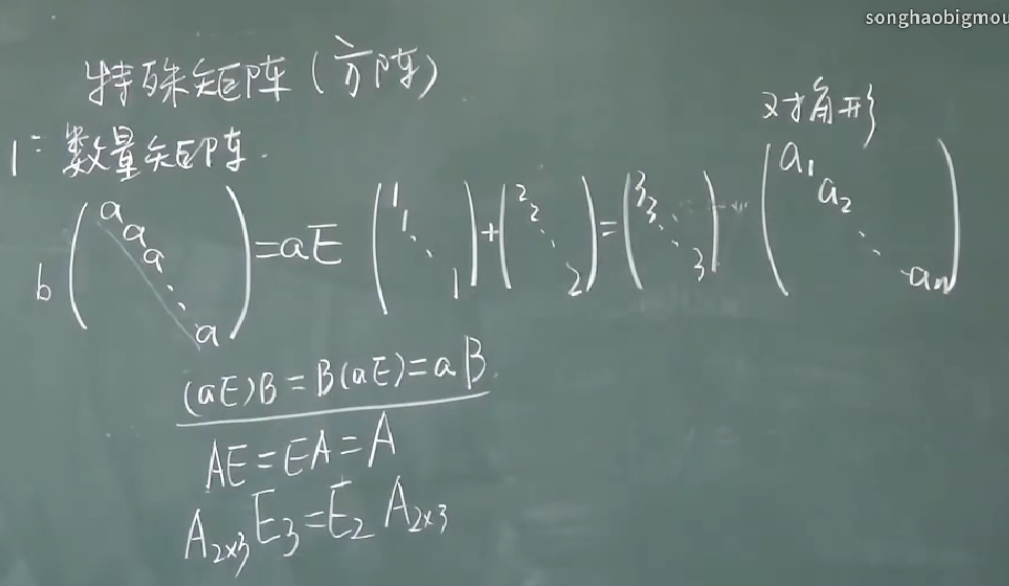 songhaobigmou
特殊矩阵(方阵)
1° 数量矩阵.
对角形
b (a a a ⋱ a) = aE (1 1 ⋱ 1) + (2 2 ⋱ 2) = (3 3 ⋱ 3) (a₁ a₂ ⋱ aₙ)
(aE)B = B(aE) = aB
AE = EA = A
A₂ₓ₃E₃ = E₂A₂ₓ₃